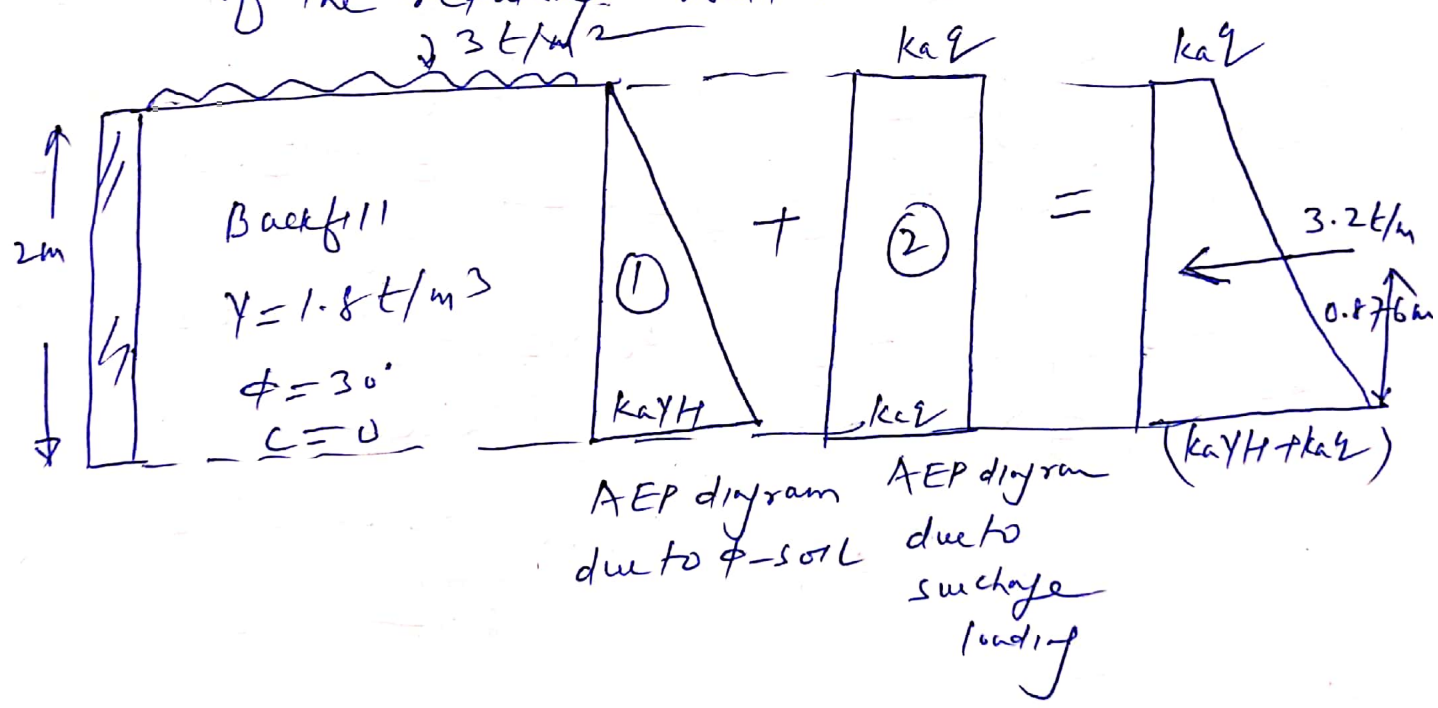 of the retaining
3 t/m2
kaq
kaq
2m
Backfill
γ=1.8t/m3
φ=30°
C=0
①
+
②
=
3.2t/m
0.876m
kaγH
kaq
(kaγH+kaq)
AEP diagram
due to φ-soil
AEP diagram
due to
surcharge
loading